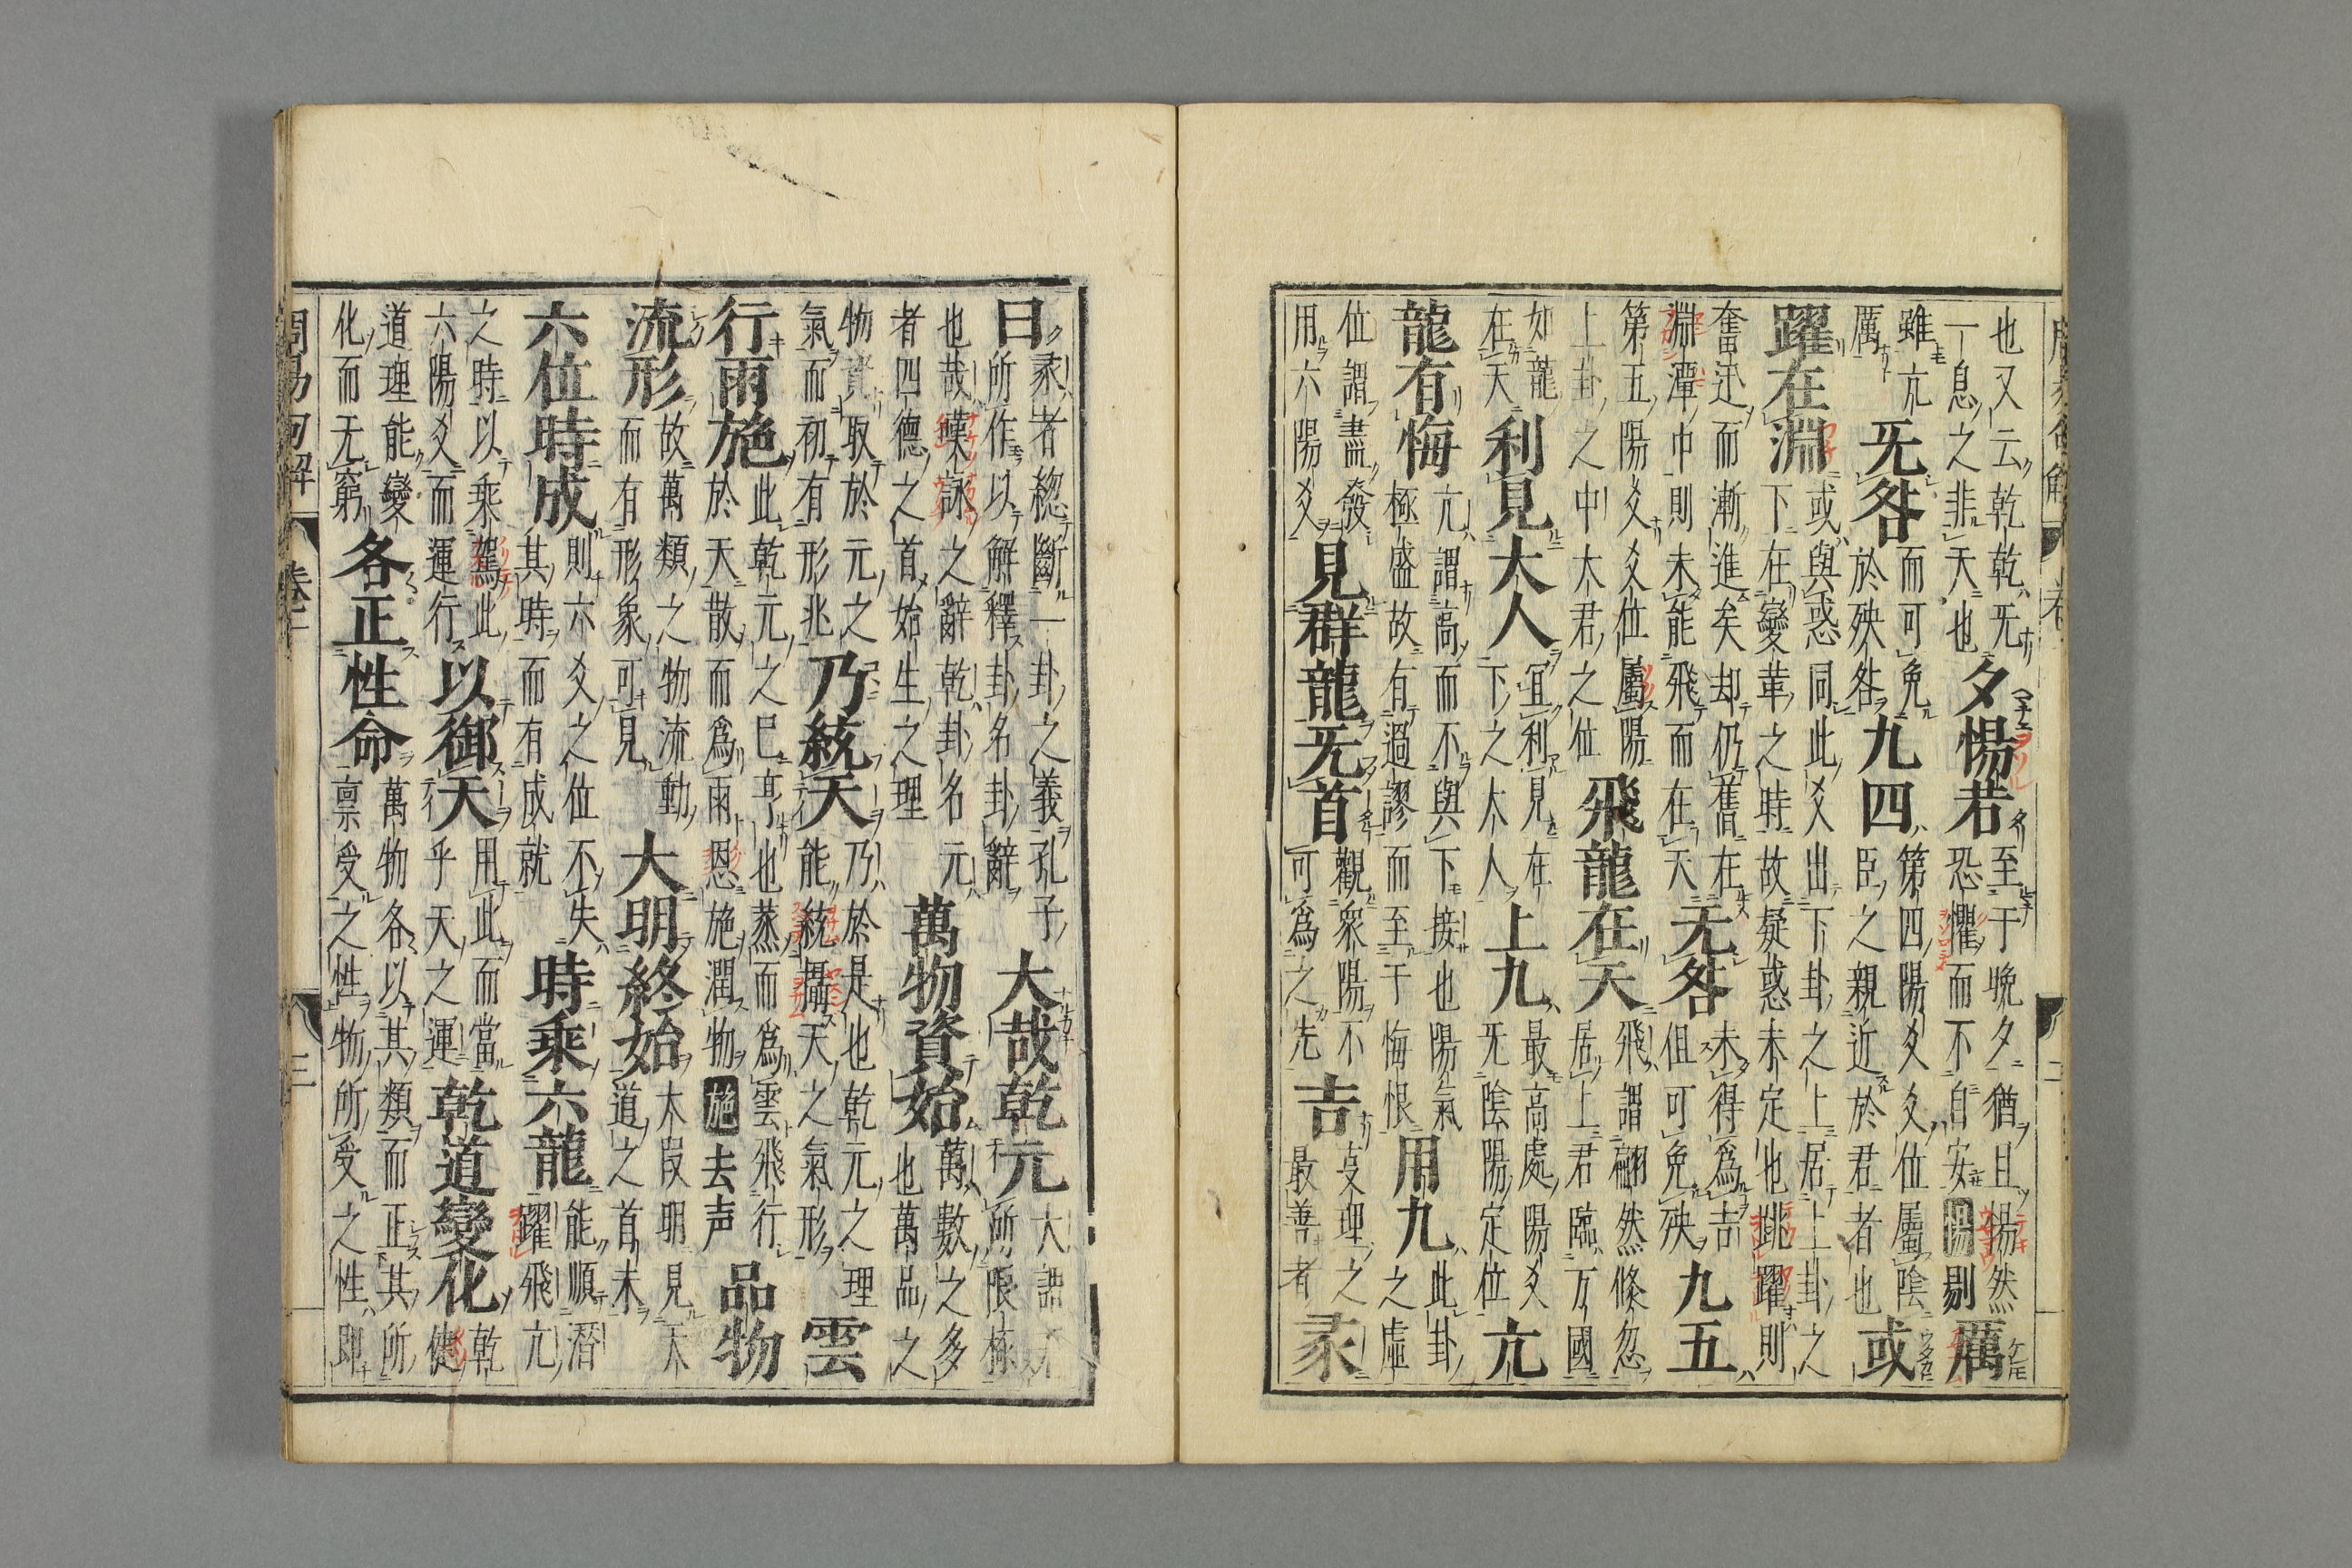 也又云乾乾无
一息之非天也
夕惕若
至于晩夕猶且惕然
恐懼而不自安惕剔
厲
雖亢
厲
无咎
而可免
於殃咎
九四
第四陽爻爻位屬陰
臣之親近於君者也
或
躍在淵
或與惑同此爻出下卦之上居上卦之
下在變革之時故疑惑未定也跳躍則
奮迅而漸進矣却仍舊在
淵潭中則未能飛而在天
无咎
未得爲吉
但可免殃
九五
第五陽爻爻位屬陽
上卦之中大君之位
飛龍在天
飛謂翩然倏忽
居上君臨万國
如龍
在天
利見大人
宜利見在
下之大人
上九
最高處陽爻
无陰陽定位
亢
龍有悔
亢謂高而不與下接也陽氣
極盛故有過謬而至于悔恨
用九
此卦
之虛
位謂盡發
用六陽爻
見群龍无首
觀衆陽不
可爲之先
吉
理之
最善者
彖
曰
彖者緫斷一卦之義孔子
所作以解釋卦名卦辭
大哉乾元
大謂
所限極
也哉嘆詠之辭乾卦名元
者四德之首始生之理
萬物資始
萬數之多
也萬品之
物資取於元之
氣而初有形兆
乃統天
乃於是也乾元之理
能統攝天之氣形
雲
行雨施
此乾元之已亨也蒸而爲雲飛行
於天散而爲雨恩施潤物施去声
品物
流形
故萬類之物流動
而有形象可見
大明終始
大段明見天
道之首末
六位時成
則六爻之位不失
其時而有成就
時乘六龍
能順潛
躍飛亢
之時以乘駕此
六陽爻而運行
以御天
用此而當
乎天之運
乾道變化
乾
健
道理能變
化而无窮
各正性命
萬物各以其類而正其所
禀受之性物所受之性即
周易句解 卷二 三